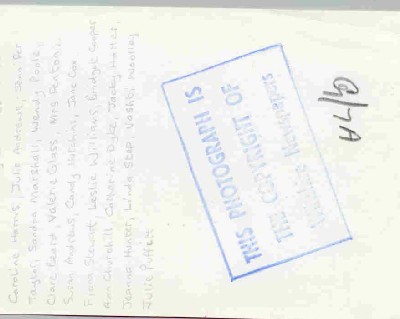 Caroline Harris, Julie Andrews, Jennifer
Taylor, Sandra Marshall, Wendy Poole,
Clare Beard, Valerie Glass, Mrs Fenton,
Susan Andrews, Sandy Hotchin, Jane Cox
Fiona Stewart, Leslie Williams, Bridget Cooper
Ann Churchill, Catherine Dyke, Jacky Hatter,
Jeanne Hunter, Linda Stop, Vashti Woolley
Julie Puffett
THIS PHOTOGRAPH IS
THE COPYRIGHT OF
Newspapers